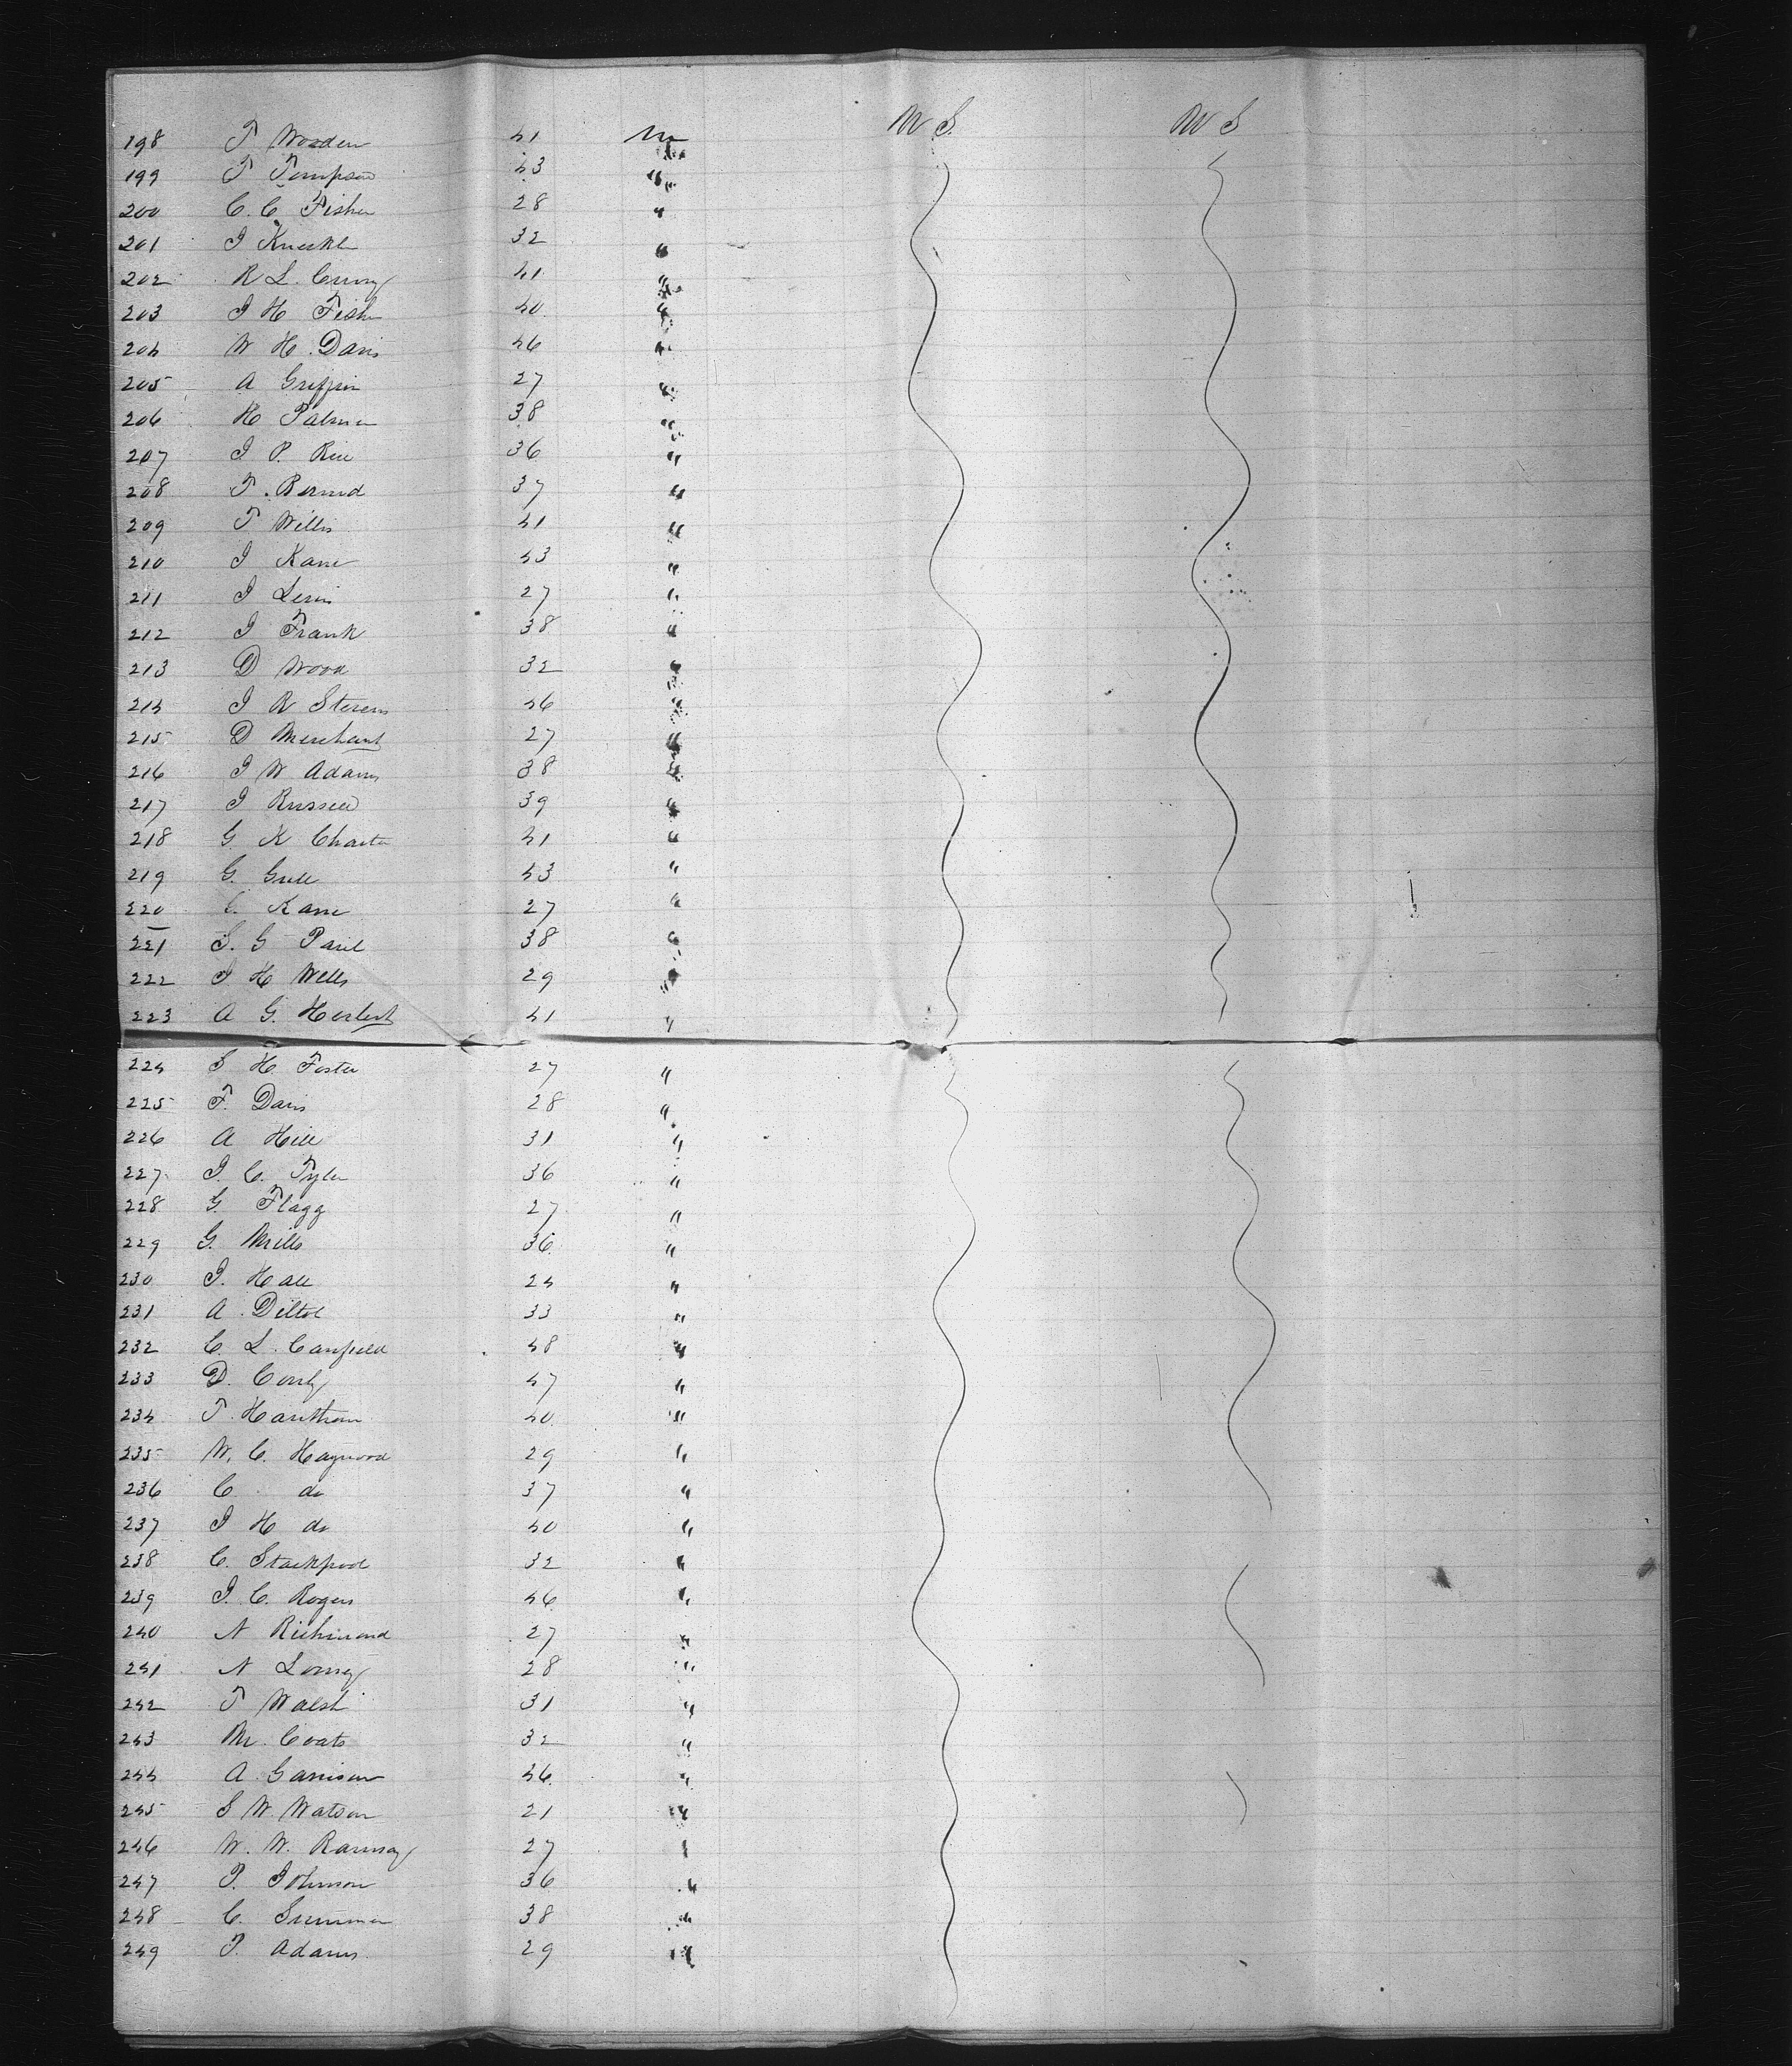 198 T Wooden 41 m U S. U S
199 T Tompson 43 "
200 C. C. Fisher 28 "
201 J Kneckle 32 "
202 R L. Curry 41 "
203 J H Fisher 40 "
204 W H. Davis 46 "
205 A Griffin 27 "
206 H Palmer 38 "
207 J P. Rice 36 "
208 T. Bernard 37 "
209 T Willis 41 "
210 J Kane 43 "
211 J Lewis 27 "
212 J Frank 38 "
213 D Wood 32 "
214 J R Stevens 46 "
215 D Merchant 27 "
216 J W Adams 38 "
217 J Russell 39 "
218 G K Charter 41 "
219 G. Gill 43 "
220 C. Kane 27 "
221 S. G Paul 38 "
222 J H Wells 29 "
223 A G. Herbert 41 "
224 S H. Foster 27 "
225 F. Davis 28 "
226 A Hill 31 "
227 J. C. Tyler 36 "
228 G Flagg 27 "
229 G. Mills 36 "
230 J. Hall 24 "
231 A. 33 "
232 C. L. Canfield 48 "
233 D. Conly 47 "
234 T. Hawthorn 40 "
235 W. C. Haywood 29 "
236 C. do 37 "
237 J H do 40 "
238 C. Stackpool 32 "
239 J. C. Rogers 46 "
240 N Richmond 27 "
241 N Loury 28 "
242 T Walsh 31 "
243 M. Coats 32 "
244 A. Garrison 46 "
245 S W. Watson 21 "
246 W. W. Ramsay 27 "
247 P. Johnson 36 "
248 C. Summer 38 "
249 T. Adams 29 "